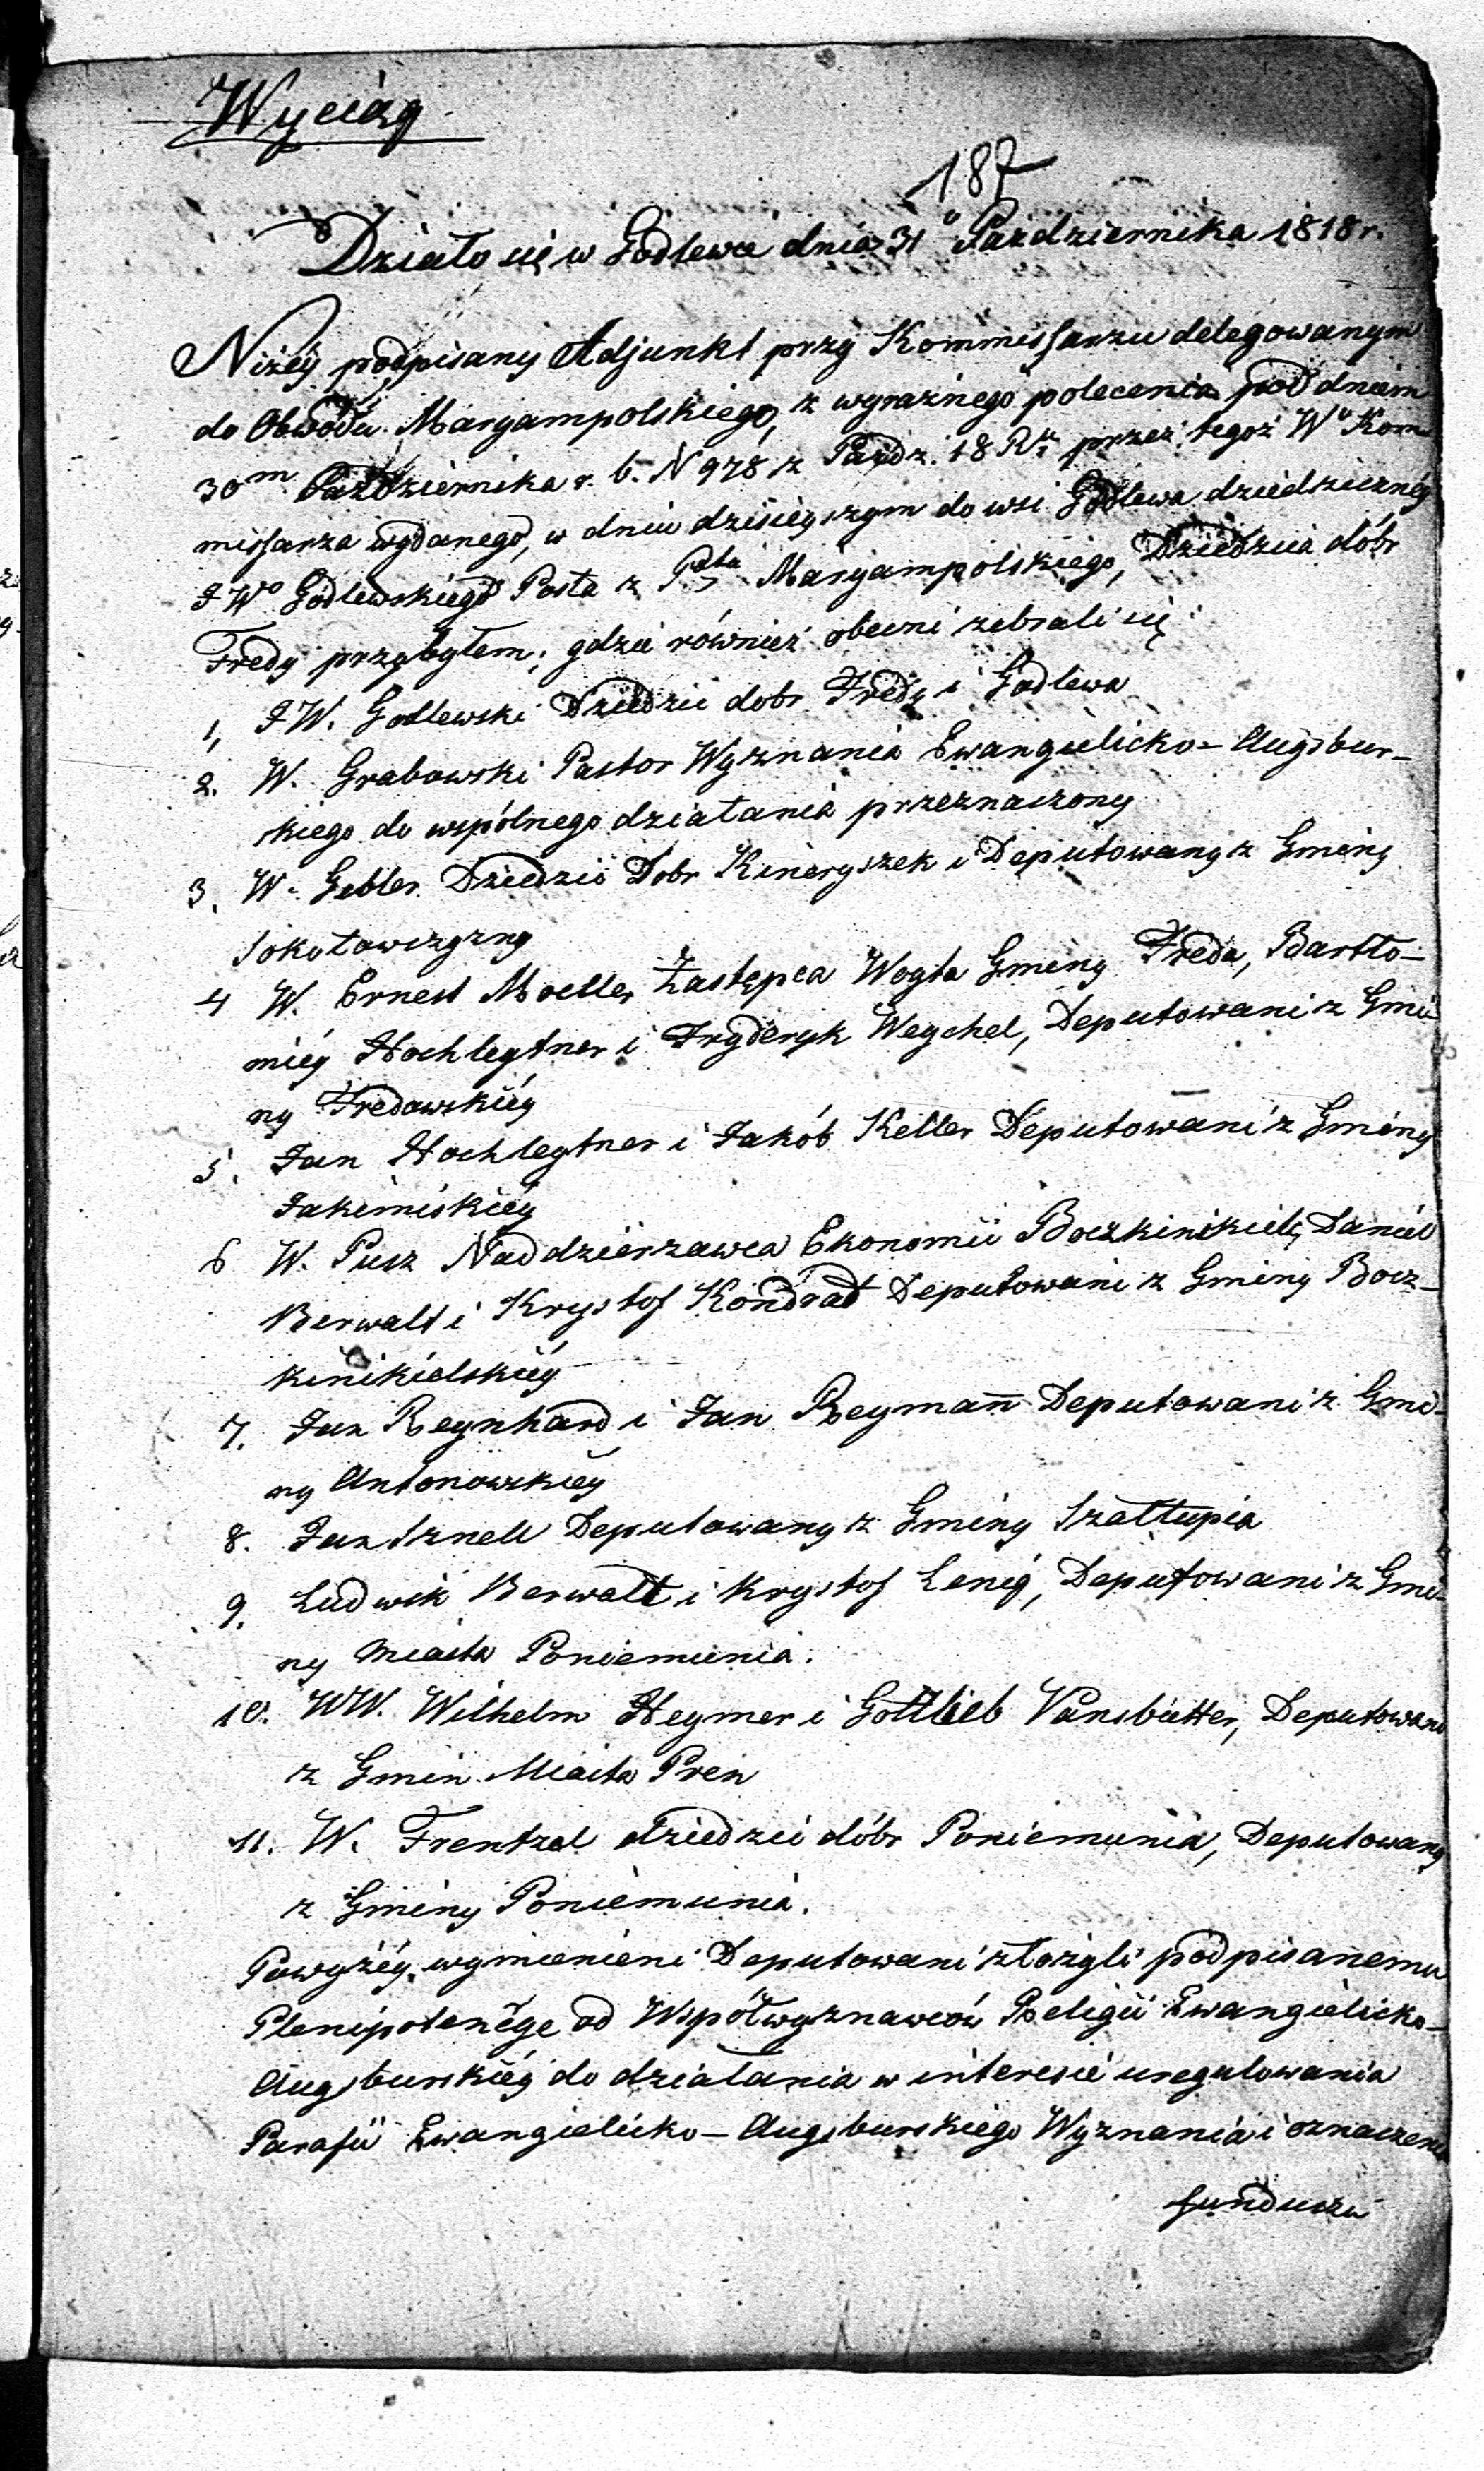 Wyciąg
187
Działo się w Godlewie dnia 31º Października 1818 r.
Niżéy podpisany Adjunkt przy Kommissarzu delegowanym
do Obwodu Maryampolskiego, z wyraźnego polecenia pod dniem
30m Października r. b. N 978 z Paźdz. 18 przez tegoż Wo Kom
missarza wydanego, w dniu dzisieyszym do wsi Godlewa dziedzicznéy
JWo Godlewskiego Posła z Ptu Maryampolskiego, Dziedzica dóbr
Fredy przybyłem; gdzie również obecni zebrali się:
1, JW. Godlewski Dziedzic dobr Fredy i Godlewa
2. W. Grabowski Pastor Wyznania Ewangielicko-Augsbur-
skiego do wspólnego działania przeznaczony
3. W. Gebler Dziedzic Dobr Kineryszek i Deputowany z Gminy
Sokołowszyzny
4 W. Ernest Moeller Zastępca Woyta Gminy Freda, Bartło-
miéy Hochleytner i Fryderyk Weychel, Deputowani z Gmi
ny Fredowskiéy
5. Jan Hochleytner i Jakób Keller Deputowani z Gminy
Jakimiskiéy
6 W. Pusz Naddzierzawca Ekonomii Boczkinikiele, Daniel
Berwalt i Krysztof Kondrad Deputowani z Gminy Bocz-
kinikielskiéy
7. Jan Reynhard i Jan Reymañ Deputowani z Gmi-
ny Antonowskiéy
8. Jan Sznell Deputowany z Gminy Szaltupia
9. Ludwik Berwalt i Krysztof Lenig, Deputowani z Gmi-
ny Miasta Poniemunia.
10. WW. Wilhelm Heymer i Gottlieb Vansbutter, Deputowani
z Gmin. Miasta Pren
11. W. Frentzel dziedzic dóbr Poniemunia, Deputowany
z Gminy Poniemunia.
Powyżéy wymienieni Deputowani złożyli podpisanemu
Plenipotencye od Współwyznawców Religii Ewangielicko-
Augsburskiéy do działania w interesie uregulowania
Parafii Ewangielicko-Augsburskiego Wyznania i oznaczenia
funduszu